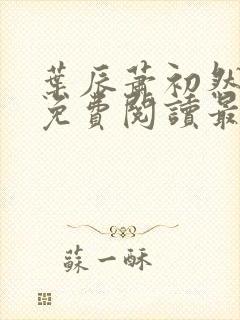 葉辰蕭初然
免費閱讀最
蘇一酥